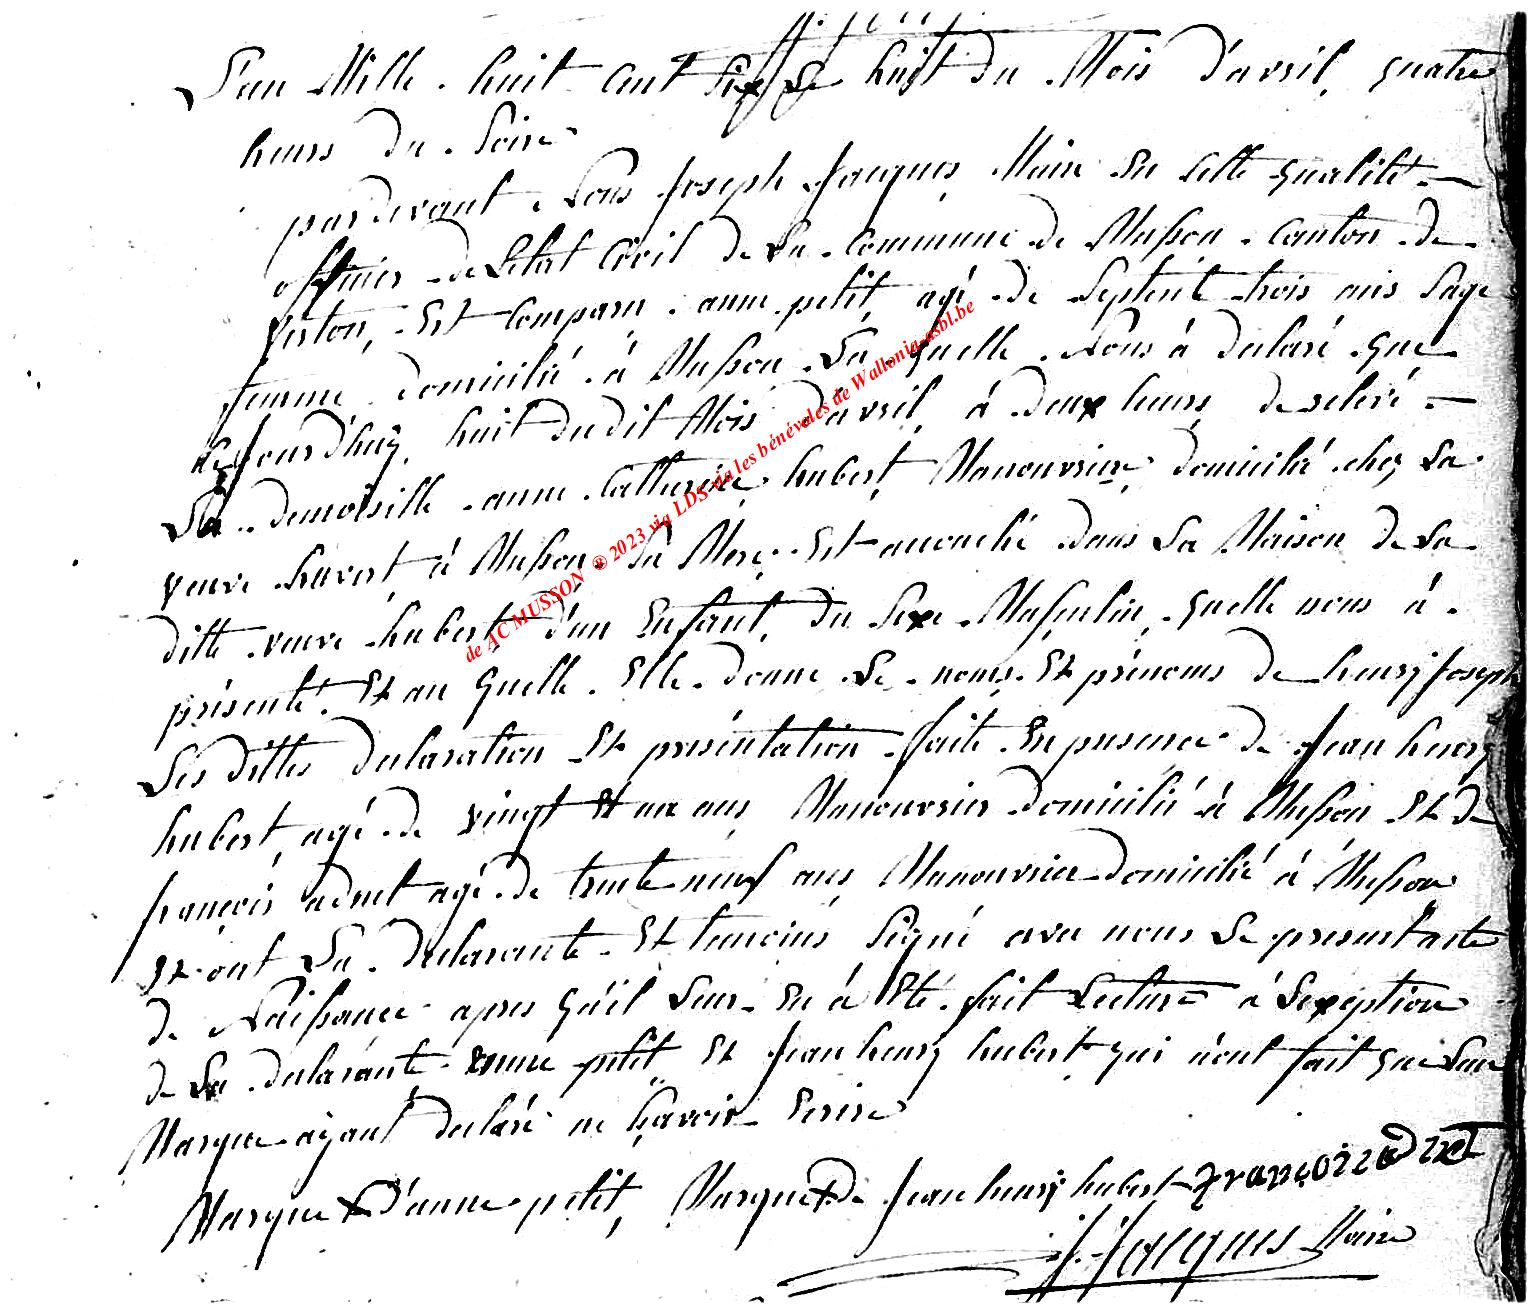 L'an Mille huit cent six Le huit du Mois d'avril, quatre
heurs du Soire
pardevant Nous Joseph Jacques Maire En cette qualité
officier de Létat Civil de La Commune de Musson canton de
virton, Est Comparu anne petit, agé de Septente trois ans Sage
femme domicilié à Musson La quelle Nous à declaré que
aujourd'huÿ huit dudit Mois d'avril à deux heurs de relevé
La demoiselle anne Catherine hubert Manouvriere domicilié chez La
veuve hubert à Musson Sa Mere Est accouché dans La Maison de La
ditte veuve hubert d'un Enfant du Sexe Masculin quelle nous à
présenté Et au quelle Elle donne Le noms Et prénoms de henrÿ Joseph
Les dittes declaration Et présentation faite En presence de Jean henrÿ
hubert agé de vingt Et un ans Manouvrier domicilié à Musson Et de
françois adnet agé de trente neuf ans Manouvrier domicilié à Musson
Et ont La declarante Et temoins Signé avec nous Le present acte
de Naissance apres qu'il Leur En à Eté fait Lecture à Lexception
de La declarante anne petit Et Jean henrÿ hubert qui n'ont fait que Leur
Marque aÿant declaré ne Scavoir Ecrire
Marque X d'anne petit, Marque X de Jean henrÿ hubert françois adnet
J. Jacques Maire
de AC MUSSON ® 2023 via LDS via les bénévoles de Wallonia-asbl.be